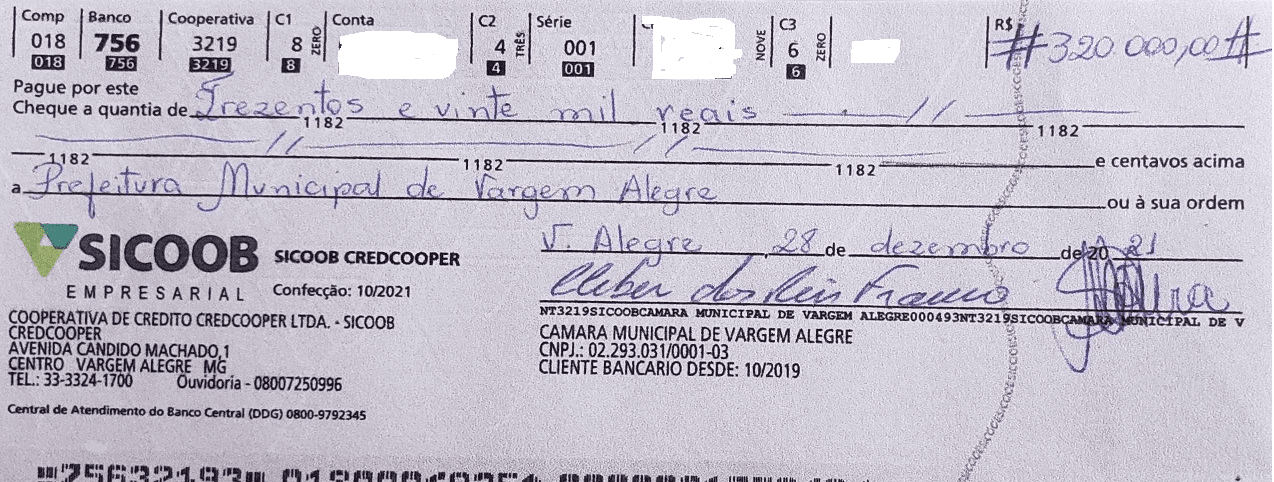 Comp Banco Cooperativa C1 Conta C2 Série C3 R$
018 756 3219 8 ZERO 4 TRÊS 001 NOVE 6 ZERO # 320.000,00 #
018 756 3219 8 4 001 6
Pague por este
Cheque a quantia de Trezentos e vinte mil reais
1182 1182 1182
1182 1182 1182 e centavos acima
a Prefeitura Municipal de Vargem Alegre ou à sua ordem
SICOOB SICOOB CREDCOOPER
EMPRESARIAL Confecção: 10/2021
V. Alegre, 28 de dezembro de 20 21
Cleber dos Reis Franco
NT3219SICOOBCAMARA MUNICIPAL DE VARGEM ALEGRE000493NT3219SICOOBCAMARA MUNICIPAL DE V
COOPERATIVA DE CREDITO CREDCOOPER LTDA. - SICOOB
CREDCOOPER
AVENIDA CANDIDO MACHADO,1
CENTRO VARGEM ALEGRE MG
TEL.: 33-3324-1700 Ouvidoria - 08007250996
CAMARA MUNICIPAL DE VARGEM ALEGRE
CNPJ.: 02.293.031/0001-03
CLIENTE BANCARIO DESDE: 10/2019
Central de Atendimento do Banco Central (DDG) 0800-9792345